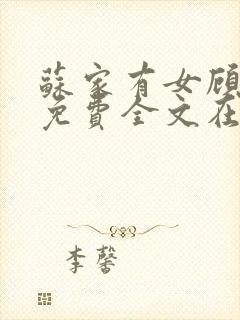 蘇家有女顾
免費全文在
李馨